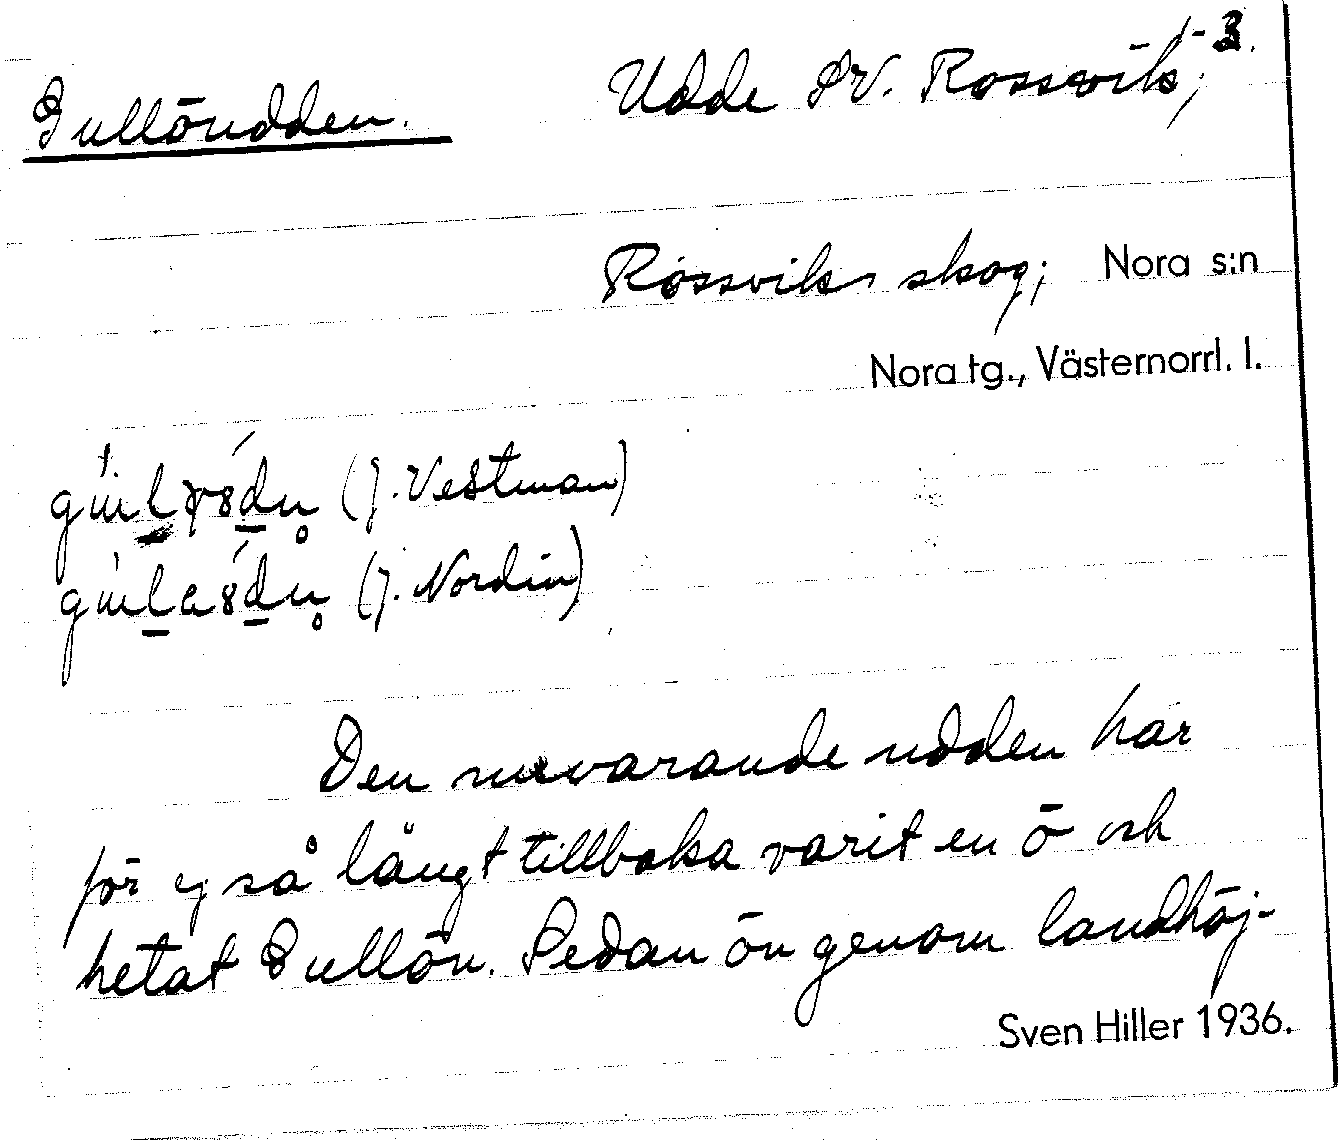 Gullöudden. Udde SV. Rossvik, 1-3.
Rossviks skog; Nora s:n
Nora tg., Västernorrl. l.
(J. Vestman)
(J. Nordin)
Den nuvarande udden har
för ej så långt tillbaka varit en ö och
hetat Gullön. Sedan ön genom landhöj-
Sven Hiller 1936.